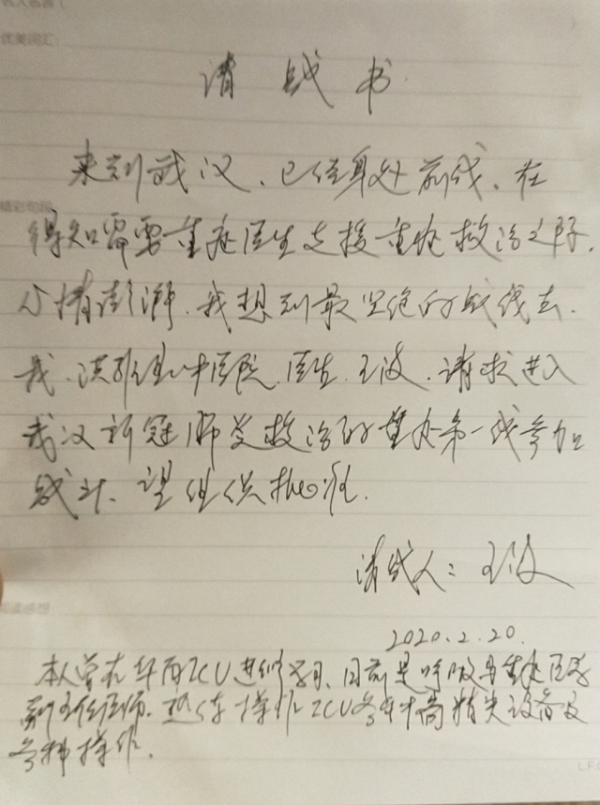 优美词汇:
请战书
来到武汉、已经身处前线、在
得知需要重症医生支援重症救治之际,
心情澎湃、我想到最坚绝的战线去.
我、洪雅县中医院医生王波、请求进入
武汉新冠肺炎救治的重症第一线参加
战斗、望组织批准.
请战人:王波
2020.2.20.
本人曾在华西ICU进修学习、目前是呼吸与重症医学
副主任医师.熟练操作ICU各种高精尖设备及
各种操作.